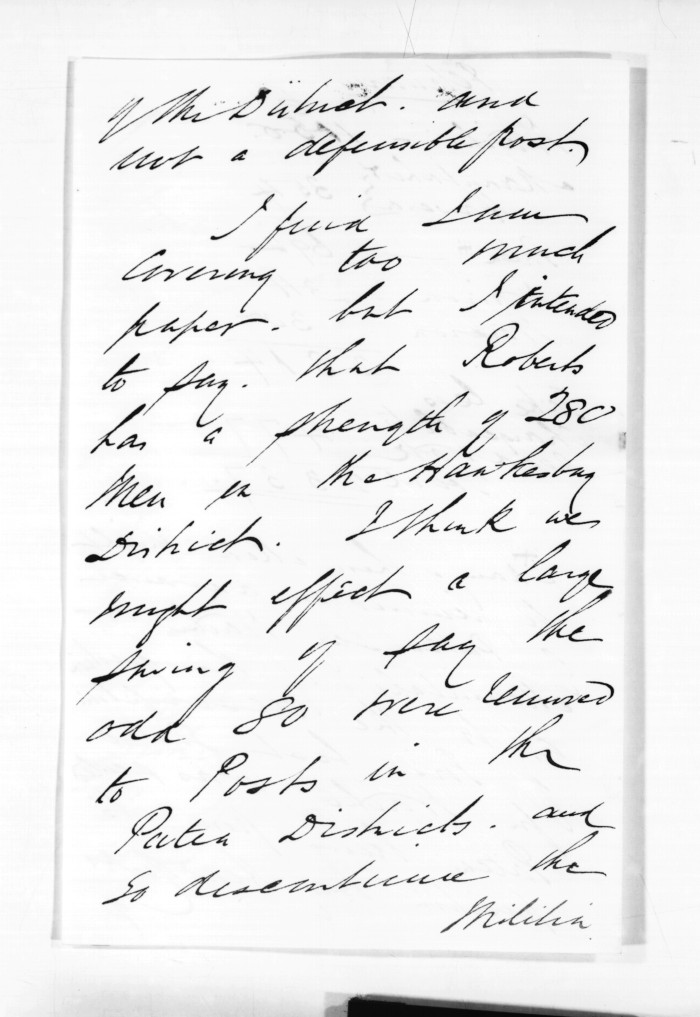 of the District. and
not a defensible post.
I find I am
covering too much
paper. but I intended
to say. that Roberts
has a strength of 280
Men in the Hawkesbay
District. I think we
might effect a large
saving if say the
odd 80 were removed
to Posts in the
Patea Districts. and
so discontinue the
Militia.